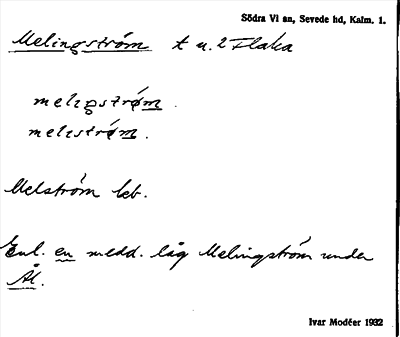 Södra Vi sn, Sevede hd, Kalm. l.
Melingström t u. 2 Flaka
melıgström.
melıström.
Melström kb.
Enl. en medd. låg Melingström under
Ål.
Ivar Modéer 1932